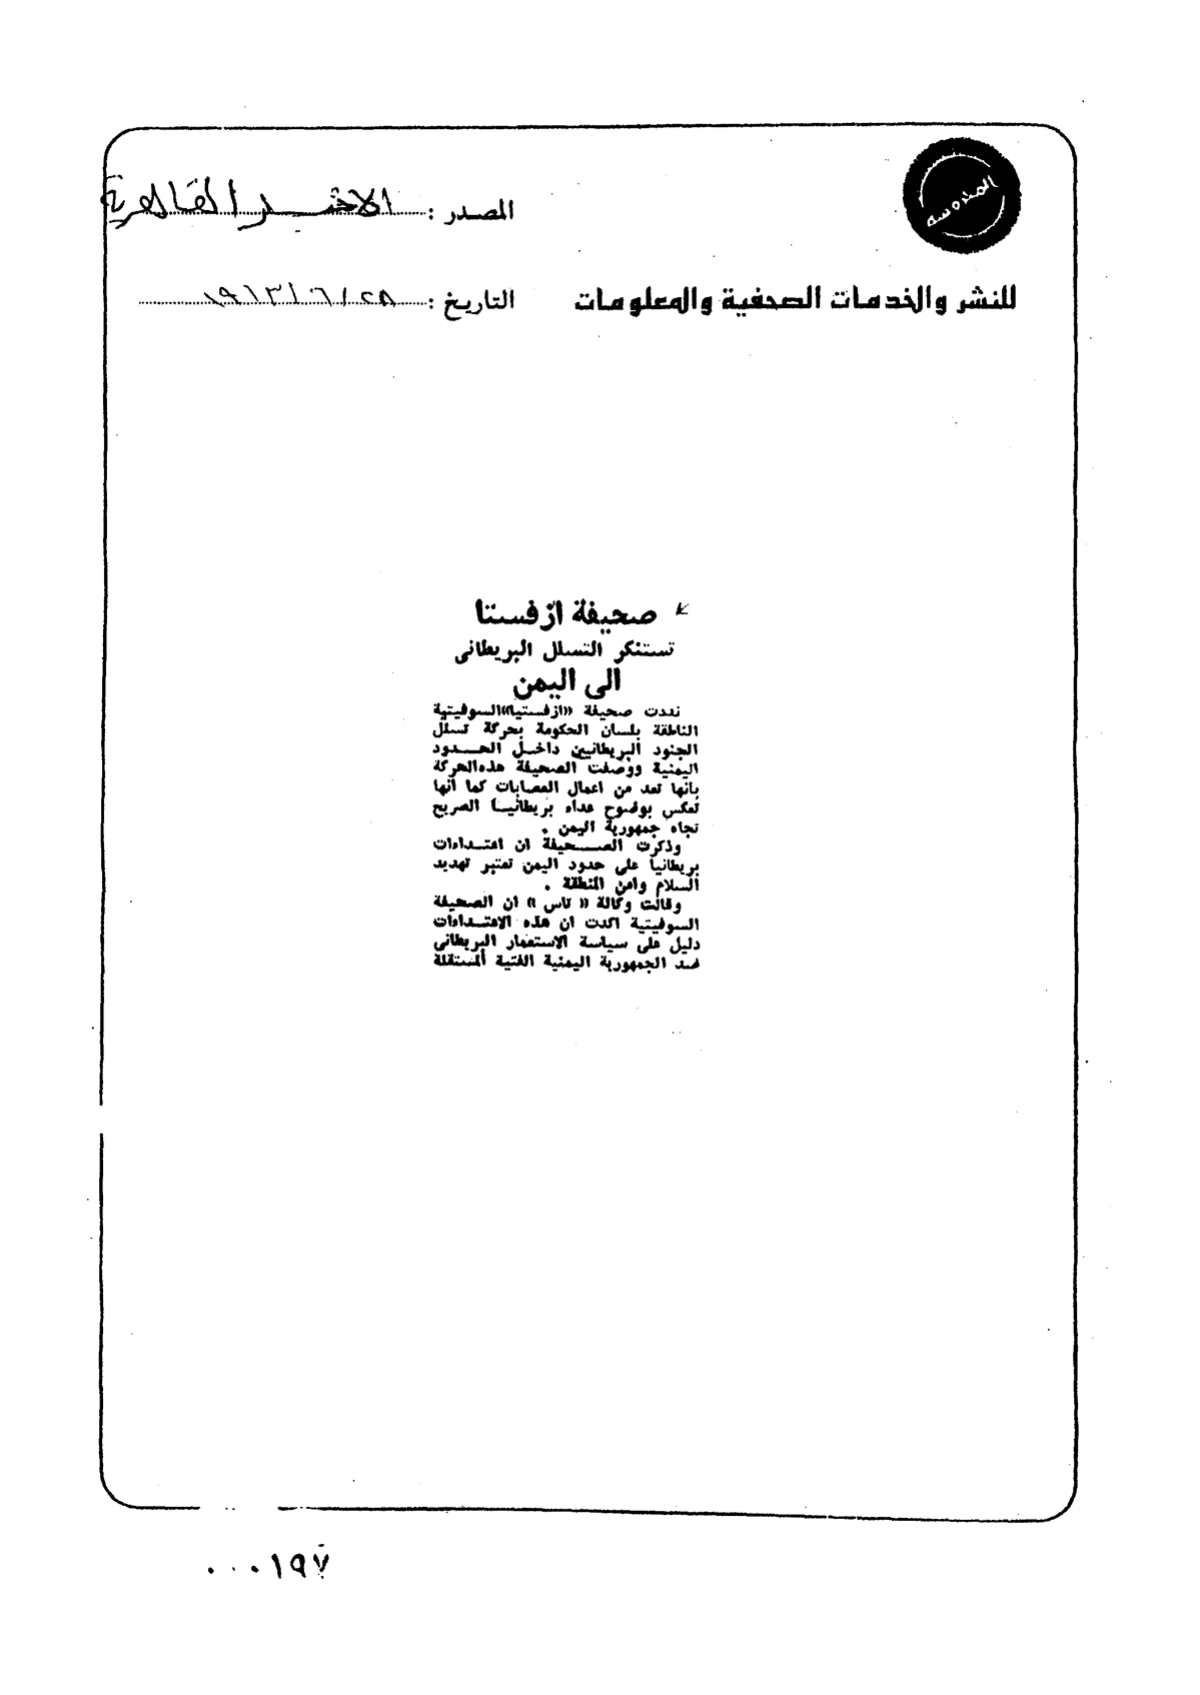 المصدر : الاخبار القاهرية
للنشر والخدمات الصحفية والمعلومات
التاريخ : ٢٨ / ٦ /
صحيفة ازفستا
تستنكر التسلل البريطانى
الى اليمن
نددت صحيفة «ازفستيا» السوفيتية
الناطقة بلسان الحكومة بحركة تسلل
الجنود البريطانيين داخـل الحـــدود
اليمنية ووصفت الصحيفة هذه الحركة
بأنها تعد من اعمال العصابات كما انها
تعكس بوضوح عداء بريطانيـا الصريح
تجاه جمهورية اليمن .
وذكرت الصـــحيفة ان اعتــداءات
بريطانيا على حدود اليمن تعتبر تهديد
السلام وامن المنطقة .
وقالت وكالة « تاس » ان الصحيفة
السوفيتية اكدت ان هذه الاعتـداءات
دليل على سياسة الاستعمار البريطانى
ضد الجمهورية اليمنية الفتية المستقلة
٠٠٠١٩٧